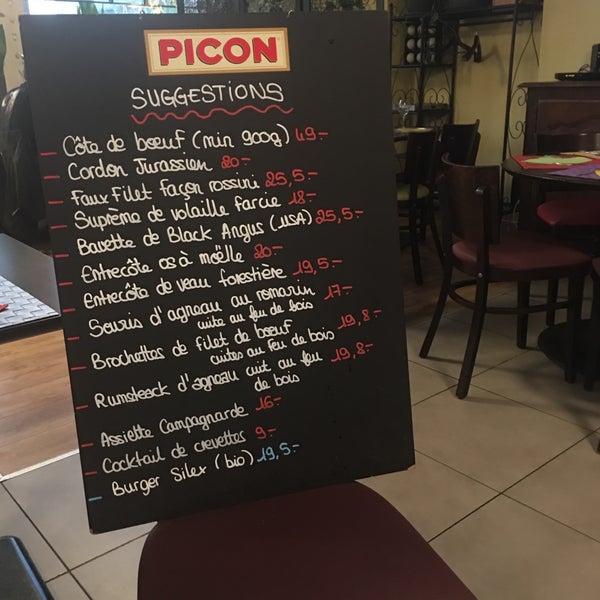 PICON
SUGGESTIONS
- Côte de bœuf (min 900g) 49.-
- Cordon Jurassien 20.-
- Faux Filet façon rossini 25,5.-
- Suprême de volaille farcie 18.-
- Bavette de Black Angus (USA) 25,5.-
- Entrecôte os à moëlle 20.-
- Entrecôte de veau forestière 19,5.-
- Souris d'agneau au romarin 17.-
cuite au feu de bois
- Brochettes de filet de bœuf 19,8.-
cuites au feu de bois
- Rumsteack d'agneau cuit au feu 19,8.-
de bois
- Assiette Campagnarde 16.-
- Cocktail de crevettes 9.-
- Burger Silex (bio) 19,5.-